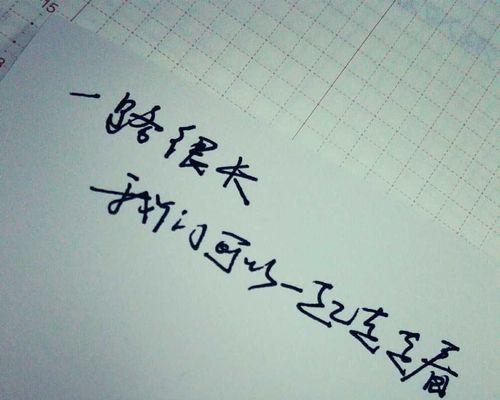 15
一路很长
我们可以一起走走看